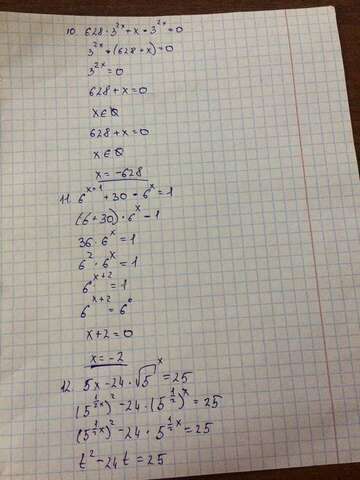 10. 628 · 3^2x + x · 3^2x = 0
3^2x · (628 + x) = 0
3^2x = 0
628 + x = 0
x ∈ Q
628 + x = 0
x ∈ Q
x = -628
11. 6^x+1 + 30 - 6^x = 1
(6 + 30) · 6^x - 1
36 · 6^x = 1
6^2 · 6^x = 1
6^x+2 = 1
6^x+2 = 6^0
x + 2 = 0
x = -2
12. 5x - 24 · √5^x = 25
(5^1/2x)^2 - 24 · (5^1/2)^x = 25
(5^1/2x)^2 - 24 · 5^1/2x = 25
t^2 - 24t = 25